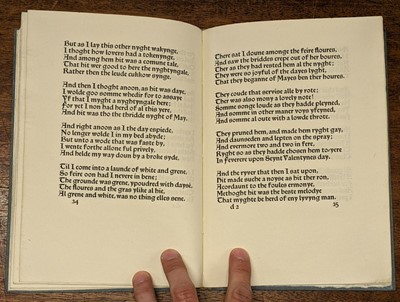 But as I lay this other nyght wakynge,
I thoght how lovers had a tokenynge,
And among hem hit was a comune tale,
That hit wer good to here the nyghtyngale,
Rather then the leude cukkow synge.
And then I thoght anoon, as hit was day,
I wolde goo somme whedir for to assay
Yf that I myght a nyghtyngale here;
For yet I non had herd of al this yere,
And hit was tho the thridde nyght of May.
And right anoon as I the day espiede,
No lenger wolde I in my bed abyde;
But unto a wode that was faste by,
I wente forthe allone ful prively,
And helde my way doun by a broke syde,
Til I come into a launde of white and grene,
So feire oon had I nevere in bene;
The grounde was grene, ypoudred with daysé,
The floures and the gras ylike al hie,
Al grene and white, was no thing elles sene.
24
Ther sat I doune amonge the feire floures,
And saw the briddes crepe out of her boures,
Ther as they had rested hem al the nyght;
They were so joyful of the dayes lyght,
That they beganne of Mayes ben ther houres.
They coude that servise alle by rote;
Ther was also mony a lovely note!
Somme songe loude as they hadde pleyned,
And somme in other maner voys yfeyned,
And somme al oute with a lowde throte.
They pruned hem, and made hem ryght gay,
And daunseden and lepten on the spray;
And evermore two and two in fere,
Ryght so as they hadde chosen hem to/yere
In feverere upon Seynt Valentynes day.
And the ryver that then I sat upon,
Hit made suche a noyse as hit ther ron,
Acordaunt to the foules ermonye,
Methoght hit was the beste melodye
That myghte be herd of eny lyvyng man.
d 2
25